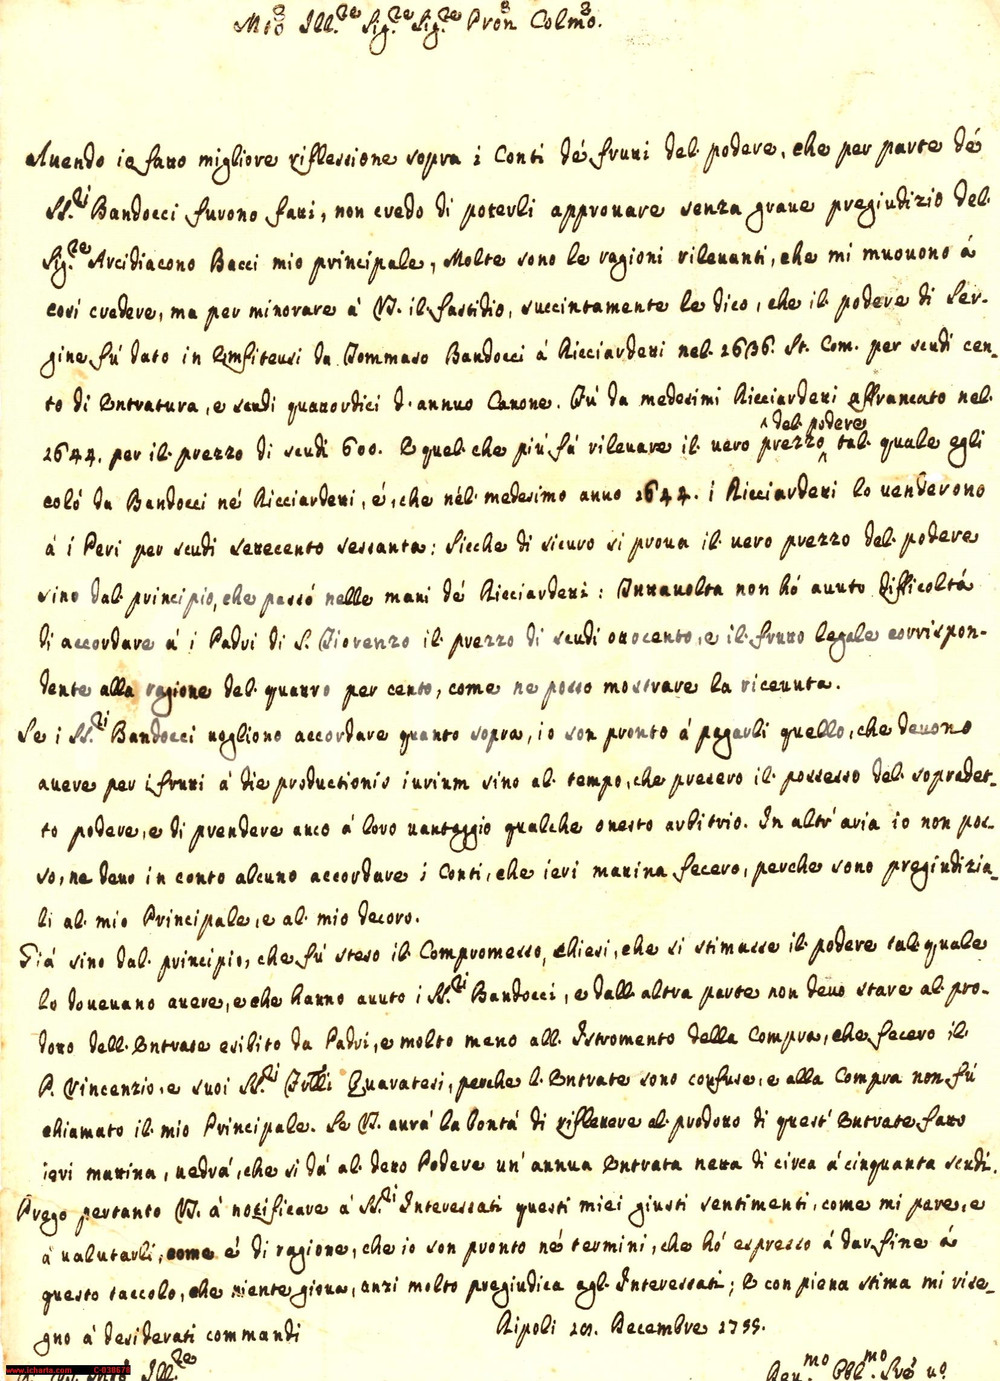 Mio Ill.re Sig.re Sig.re Pron Colmo.
Auendo io fatto migliore riflessione sopra i Conti dé frutti del podere, che per parte dé
SS.ri Bandocci furono fatti, non credo di poterli approuare senza graue pregiudizio del
Sig.re Arcidiacono Bacci mio principale, Molte sono le ragioni rileuanti, che mi muouono á
cosí credere, ma per minorare á VS. il fastidio, succintamente le dico, che il podere di Ser-
gine fú dato in Enfiteusi da Tommaso Bandocci á Ricciardetti nel 1636. St. Com. per scudi cen-
to di Entratura, e scudi quattordici d'annuo Canone. Fú da medesimi Ricciardetti affrancato nel
1644. per il prezzo di scudi 600. E quel che piú fá rileuare il uero prezzo del podere tal quale egli
coló da Bandocci né Ricciardetti, é, che nél medesimo anno 1644. i Ricciardetti lo venderono
á i Peri per scudi settecento sessanta: Sicche di sicuro si proua il uero prezzo del podere
sino dal principio, che passó nelle mani dé Ricciardetti: Tuttauolta non hó auuto difficoltá
di accordare á i Padri di S. Fiorenzo il prezzo di scudi ottocento, e il frutto legale corrispon-
dente alla ragione del quattro per cento, come ne posso mostrare la riceuuta.
Se i SS.ri Bandocci uogliono accordare quanto sopra, io son pronto á pagarli quello, che deuono
auere per i frutti á die productionis iurium sino al tempo, che presero il possesso del sopradet-
to podere, e di prendere anco á loro uantaggio qualche onesto arbitrio. In altr'auia io non pos-
so, ne deuo in conto alcuno accordare i Conti, che ieri mattina fecero, perche sono pregiudizia-
li al mio Principale, e al mio decoro.
Giá sino dal principio, che fú steso il Compromesso, chiesi, che si stimasse il podere tal quale
lo doueuano auere, e che hanno auuto i SS.ri Bandocci, e dall'altra parte non deuo stare al pro-
dotto dell'Entrate esibito da Padri, e molto meno all'Istromento della Compra, che fecero il
P. Vincenzio, e suoi SS.ri Frlli Quaratesi, perche l'Entrate sono confuse, e alla Compra non fú
chiamato il mio Principale. Se VS. aurá la bontá di riflettere al prodotto di quest'Entrate fatto
ieri mattina, uedrá, che si dá al detto Podere un'annua Entrata netta di circa á cinquanta scudi.
Prego pertanto VS. á notificare á SS.ri Interessati questi miei giusti sentimenti, come mi pare, e
á ualutarli, come é di ragione, che io son pronto né termini, che hó espresso á dar fine á
questo taccolo, che niente gioua, anzi molto pregiudica agl'Interessati; E con piena stima mi rise-
gno á desiderati commandi
Ripoli Decembre 1755.
Ill.re
mo Obl.mo
www.icharta.com C-038678